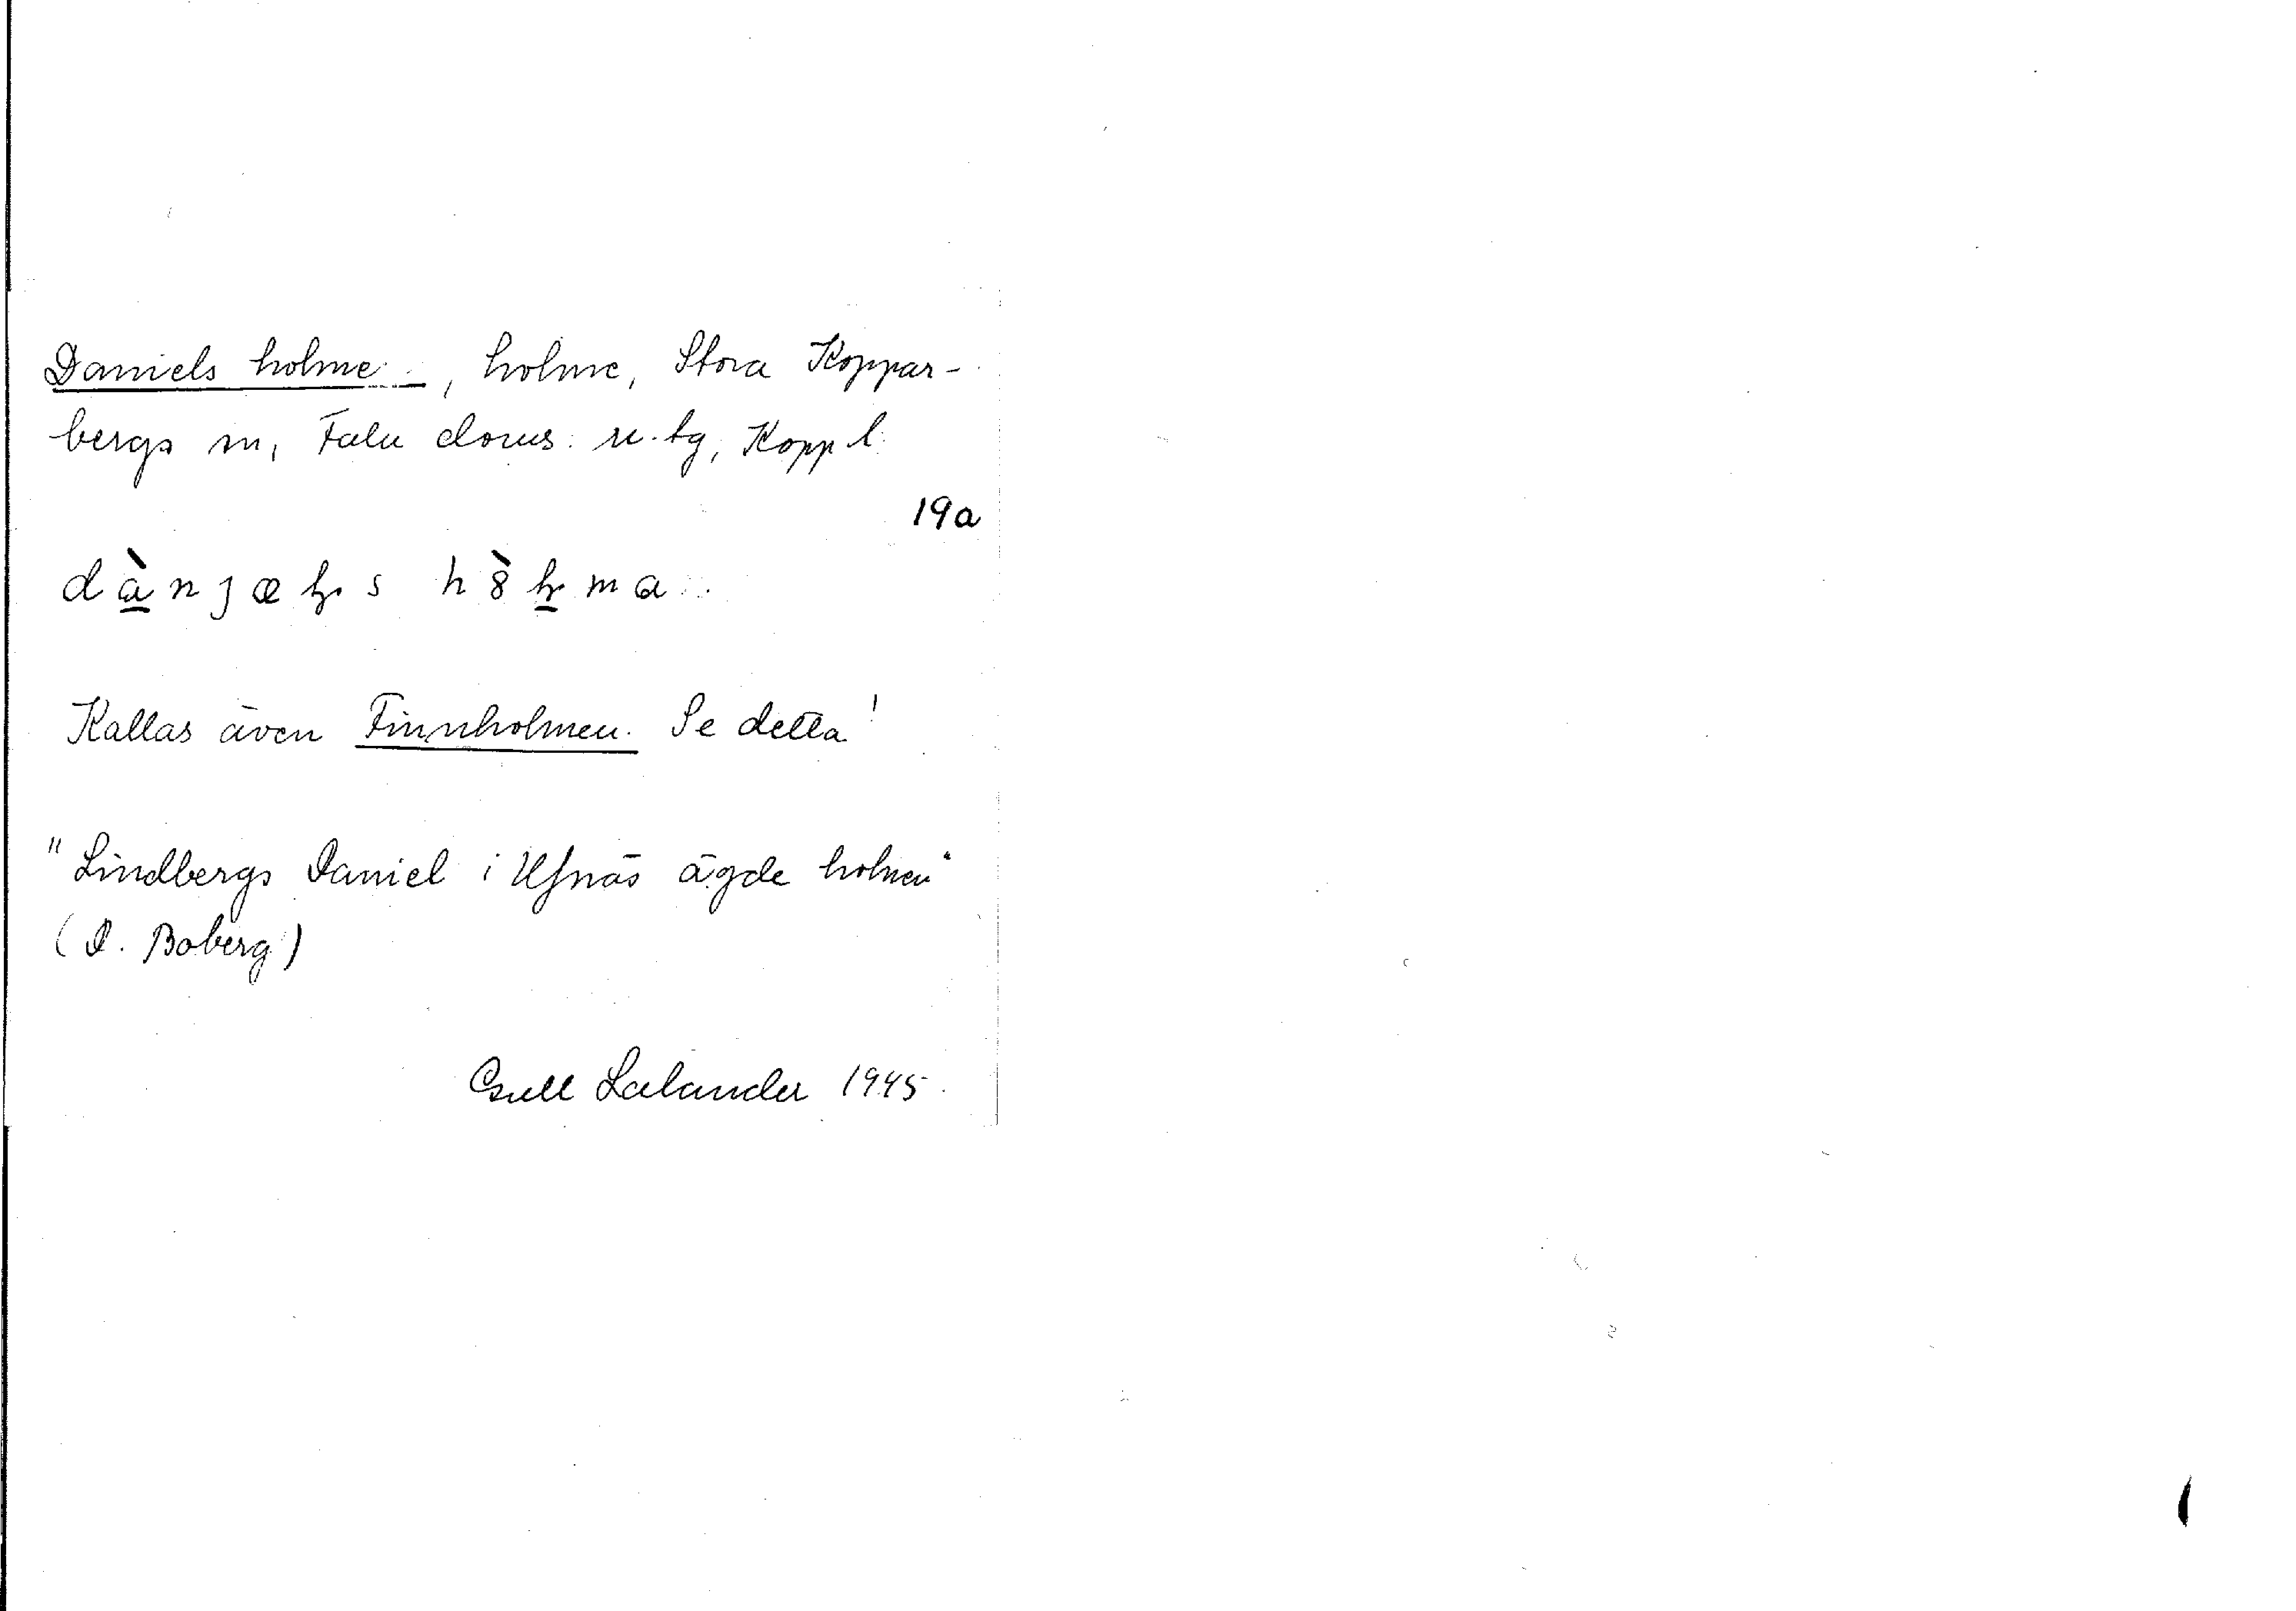 Daniels holme, holme, Stora Koppar-
bergs sn, Falu doms. n. tg, Kopp l.
19a
Kallas även Finnholmen. Se detta!
"Lindbergs Daniel i Ufnäs ägde holmen"
(D. Boberg)
Lalander 1945